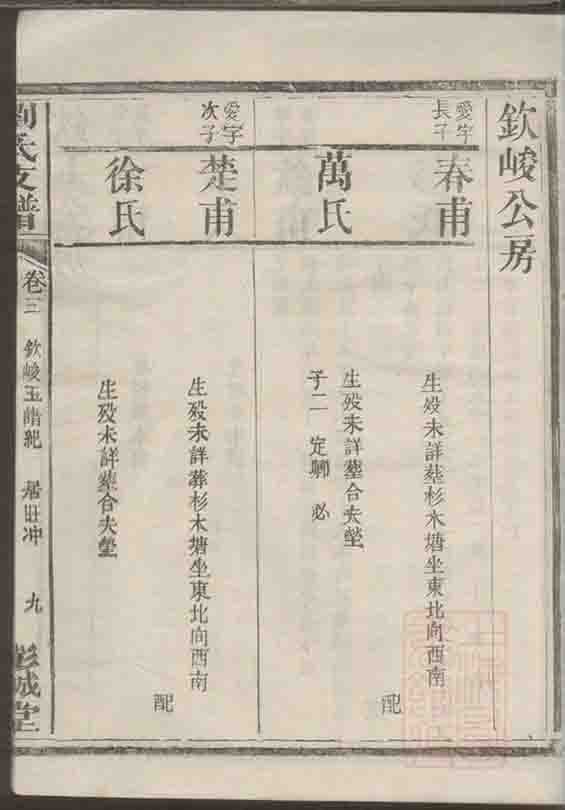 欽峻公房
愛宇
長子
春甫
生殁未詳塟杉木塘坐東北向西南
配
萬氏
生殁未詳塟合夫塋
子二 定 必
愛宇
次子
楚甫
生殁未詳葬杉木塘坐東北向西南
配
徐氏
生殁未詳塟合夫塋
劉氏支譜
卷三
欽峻玉 紀 居旺冲
九
彭城堂